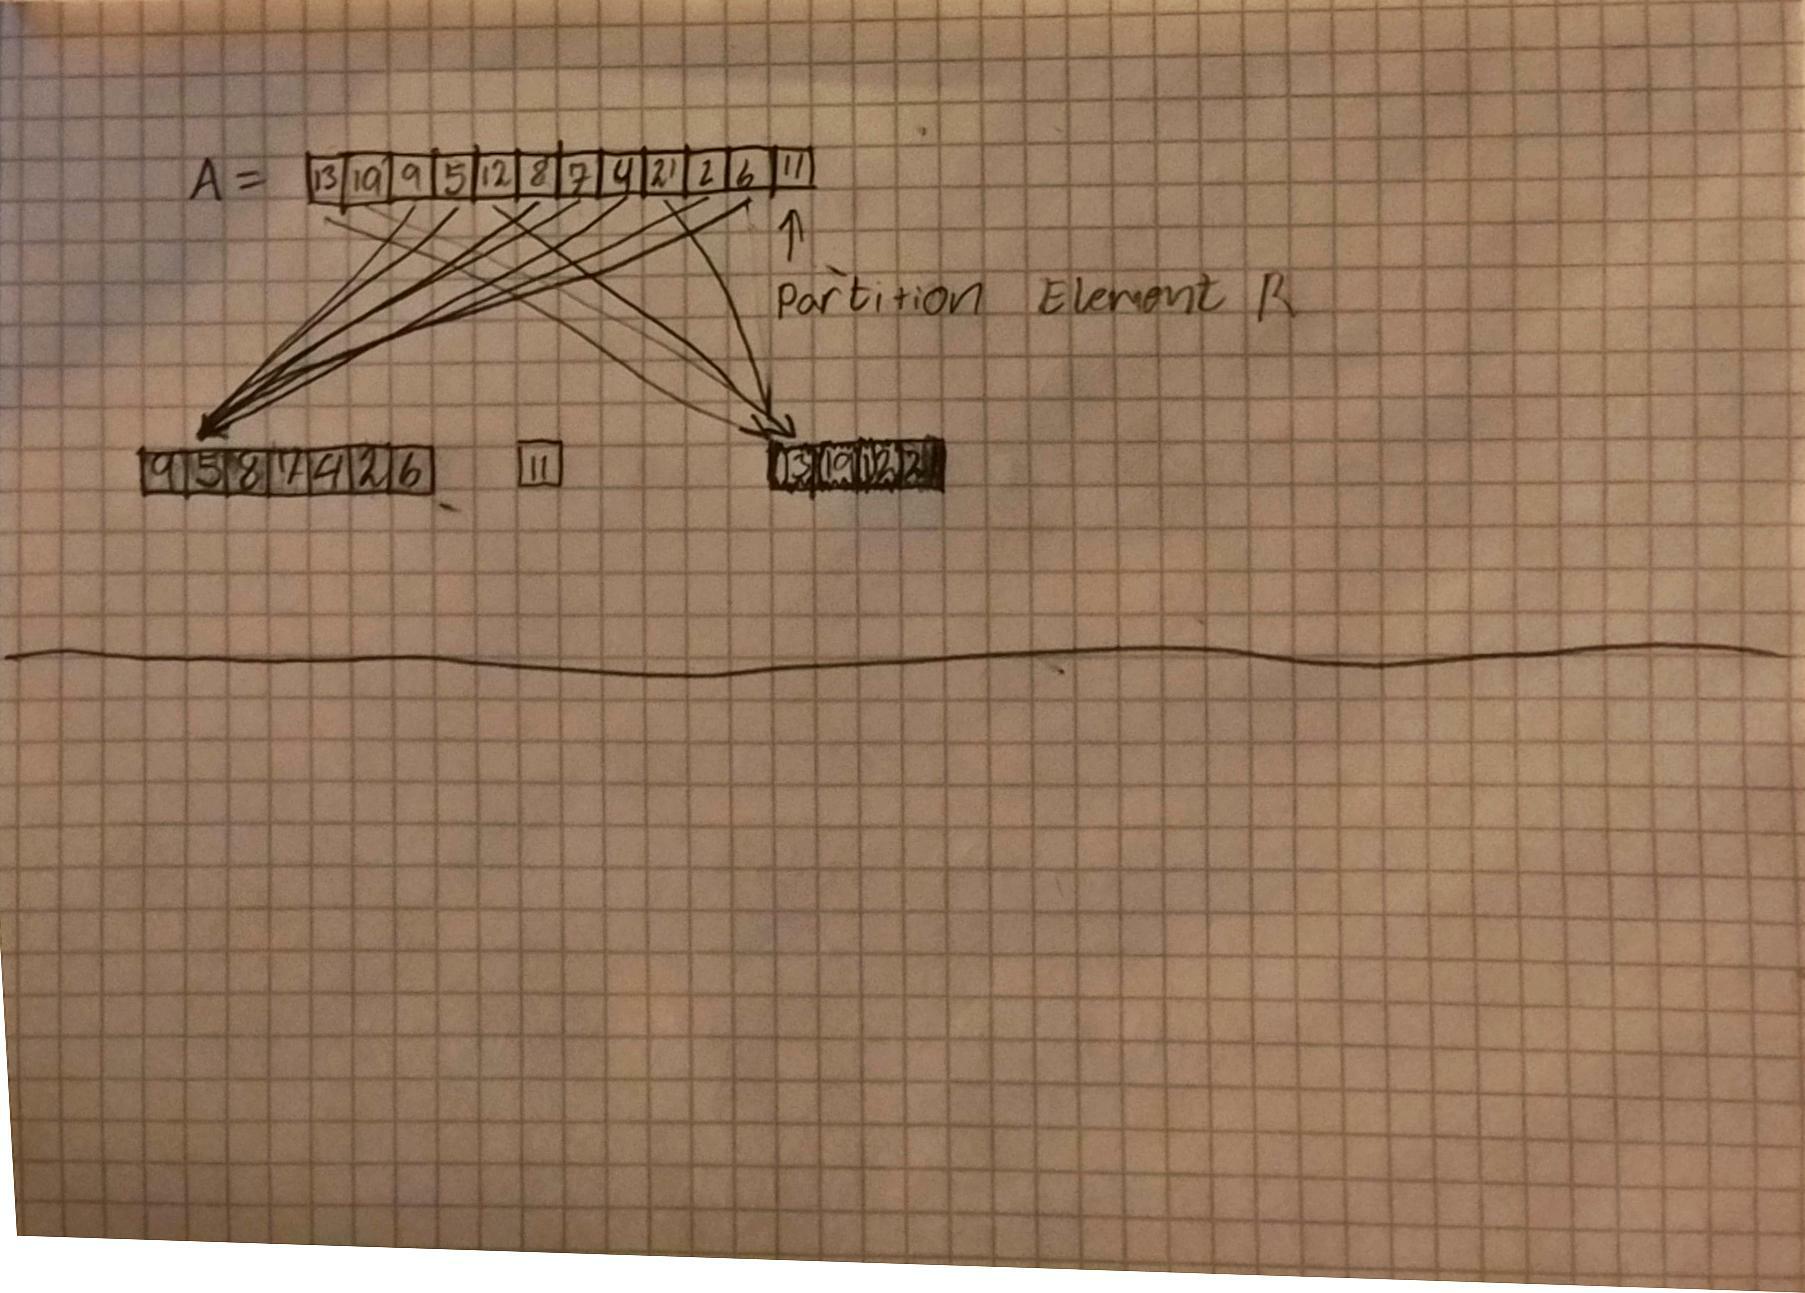 A = 13 19 9 5 12 8 7 4 21 2 6 11
Partition Element R
9 5 8 7 4 2 6 11 13 19 12 21